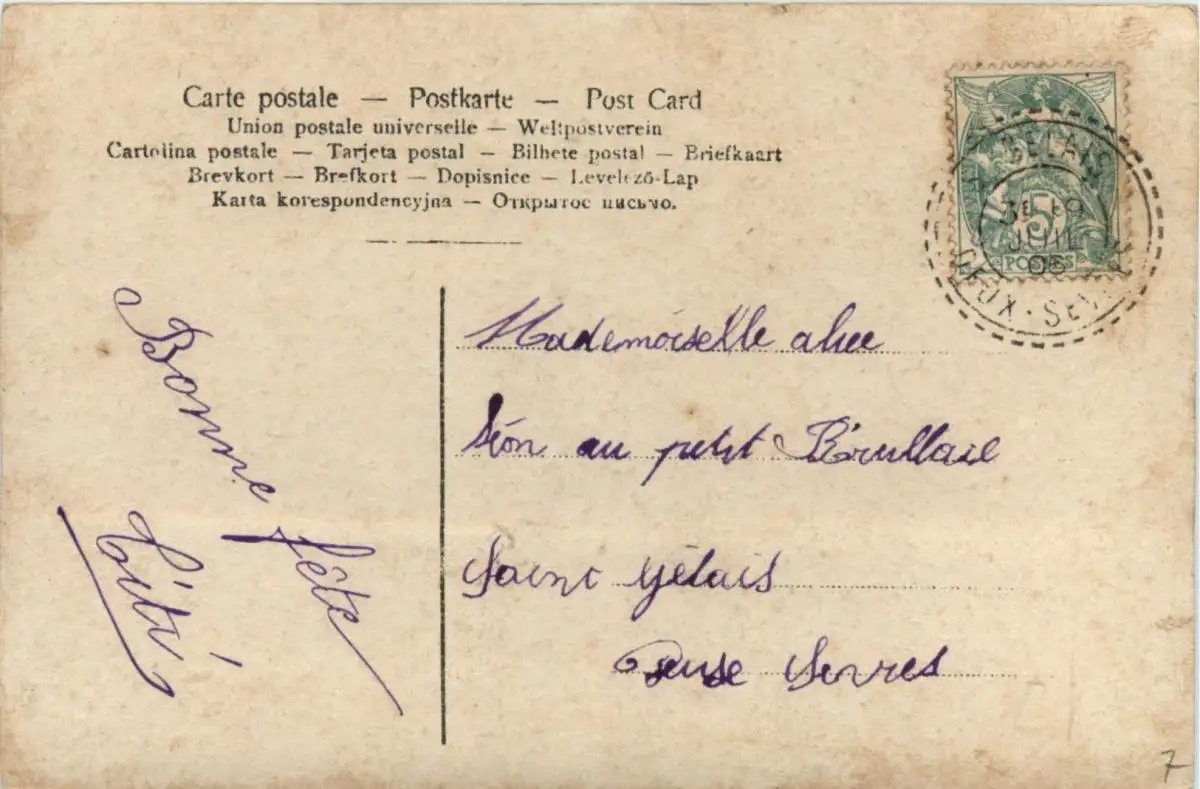 Carte postale — Postkarte — Post Card
Union postale universelle — Weltpostverein
Cartolina postale — Tarjeta postal — Bilhete postal — Briefkaart
Brevkort — Brefkort — Dopisnice — Levelező-Lap
Karta korespondencyjna — Открытое письмо.
GELAIS
19
JUIL
06
DEUX-SEVRES
5
POSTES
Bonne fête
Titi
Mademoiselle alice
Léon au petit
Saint Gélais
Deuse Sevres
7